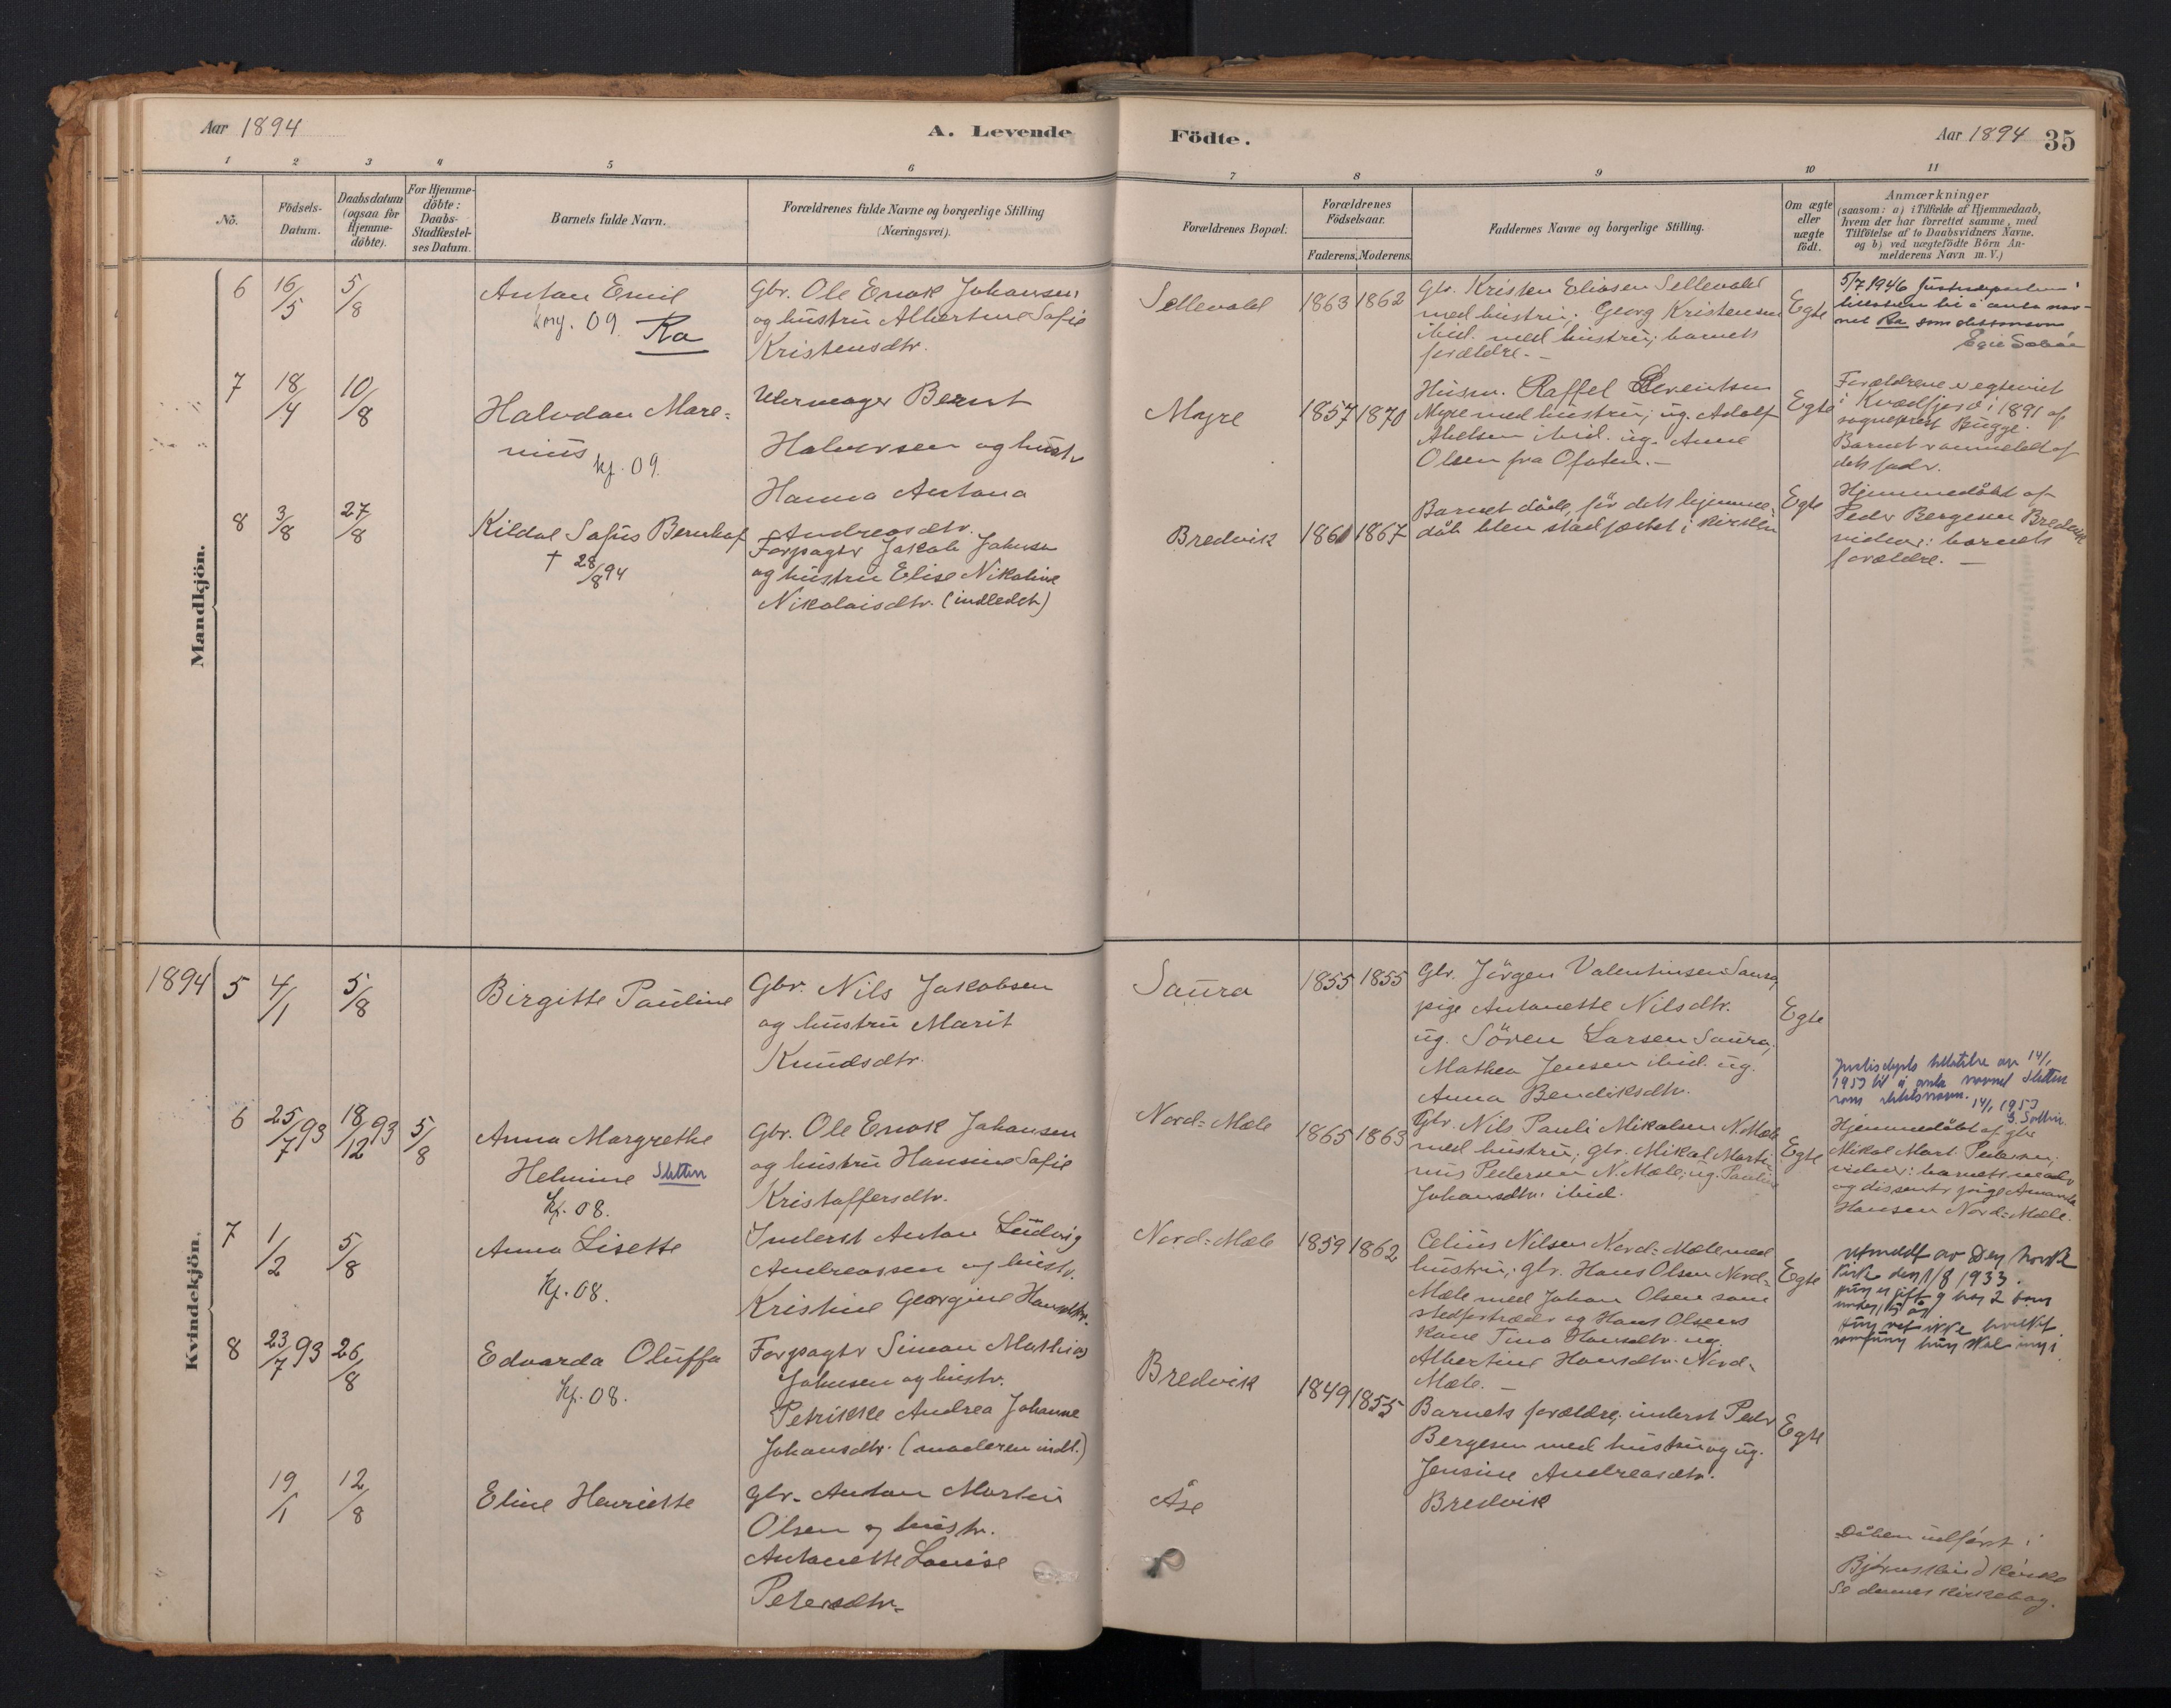 Aar 1894
A. Levende
Födte.
Aar 1894 35
1 2 3 4 5 6 7 8 9 10 11
No.
Födsels-
Datum.
Daabsdatum
(ogsaa for
Hjemme-
döbte).
For Hjemme-
döbte:
Daabs-
Stadfæstel-
ses Datum.
Barnets fulde Navn.
Forældrenes fulde Navne og borgerlige Stilling
(Næringsvei).
Forældrenes Bopæl.
Forældrenes
Födselsaar.
Faderens. Moderens.
Faddernes Navne og borgerlige Stilling.
Om ægte
eller
uægte
födt.
Anmærkninger
(saasom: a) i Tilfælde af Hjemmedaab,
hvem der har forrettet samme, med
Tilföielse af to Daabsvidners Navne,
og b) ved uægtefödte Börn An-
melderens Navn m. V.)
Mandkjön.
6 16/5 5/8
Anton Emil
konf. 09. Ra
Gbr. Ole Enok Johansen
og hustru Albertine Sofie
Kristensdtr.
Sellevold
1863 1862
Gbr. Kristen Eliasen Sellevold
med hustru; Georg Kristensen
ibid. med hustru; barnets
forældre. -
Egte
5/7 1946 Justisdepartem.
tillatelse til å anta nav-
net Ra som slektsnavn
7 18/4 10/8
Halvdan Mare-
nius
kf. 09.
Uhrmager Bernt
Halvorsen og hustr.
Hanna Antona
Andreasdtr.
Myre
1857 1870
Husm. Raffel Lorentsen
Myre med hustru; ug. Adolf
Abelsen ibid. ug. Anne
Olsen fra Ofoten. -
Egte
Forældrene er egteviet
i Kvædfjord i 1891 af
sogneprest Bugge.
Barnet anmeldt af
dets fader.
8 3/8 27/8
Kildal Sofus Bernhof
† 28/8 94
Forpagter Jakob Johnsen
og hustru Elise Nikoline
Nikolaisdtr. (indledet)
Bredvik
1861 1867
Barnet döde, för dets hjemme-
dåb blev stadfæstet i kirken
Egte
Hjemmedöbt af
Peder Bergesen Bredvik
vidner: barnets
forældre. -
Kvindekjön.
1894 5 4/1 5/8
Birgitte Pauline
Gbr. Nils Jakobsen
og hustru Marit
Knudsdtr.
Saura
1855 1855
Gbr. Jörgen Valentinsen Saura,
pige Antonette Nilsdtr.
ug. Sören Larsen Saura;
Mathea Jensen ibid. ug.
Anna Bendiksdtr.
Egte
6 25/7 93 18/12 93 5/8
Anna Margrethe
Helmine Sletten
Kf. 08.
Gbr. Ole Enok Johansen
og hustru Hansine Sofie
Kristoffersdtr.
Nord-Mæle
1865 1863
Gbr. Nils Pauli Mikalsen N. Mæle
med hustru; gbr. Mikal Marti-
nus Pedersen N. Mæle; ug. Pauline
Johansdtr. ibid.
Egte
Justisdepts tillatelse av 14/1
1953 til å anta navnet Sletten
som slektsnavn. 14/1 1953
Hjemmedöbt af gbr.
Mikal Mart. Pedersen;
vidner: barnets moder
og dissenter pige Amanda
Hansen Nord-Mæle.
7 1/2 5/8
Anna Lisette
Kf. 08.
Inderst Anton Ludvig
Andreassen og hustr.
Kristine Georgine Hansdtr.
Nord-Mæle
1859 1862
Celius Nilsen Nord-Mæle med
hustru; gbr. Hans Olsen Nord-
Mæle med Johan Olsen som
stedfortræder og Hans Olsens
kone Tina Hansdtr. ug.
Albertine Hansdtr. Nord-
Mæle. -
Egte
Utmeldt av Den norske
kirke den 1/8 1933.
Hun er gift og har 2 barn
under 15 år
Hun vet ikke hvilket
samfunn hun skal inn i.
8 23/7 93 26/8
Edvarda Oluffa
Kf. 08.
Forpagter Simon Mathias
Johnsen og hustr.
Petrikke Andrea Johanne
Johansdtr. (moderen indl.)
Bredvik
1849 1855
Barnets forældre; inderst Peder
Bergesen med hustru og ug.
Jensine Andreasdtr.
Bredvik
Egte
19/1 12/8
Eline Henriette
Gbr. Anton Martin
Olsen og hustr.
Antonette Lovise
Petersdtr.
Åse
Dåben udført i
Bjørnskind kirke
Se dennes kirkebog.